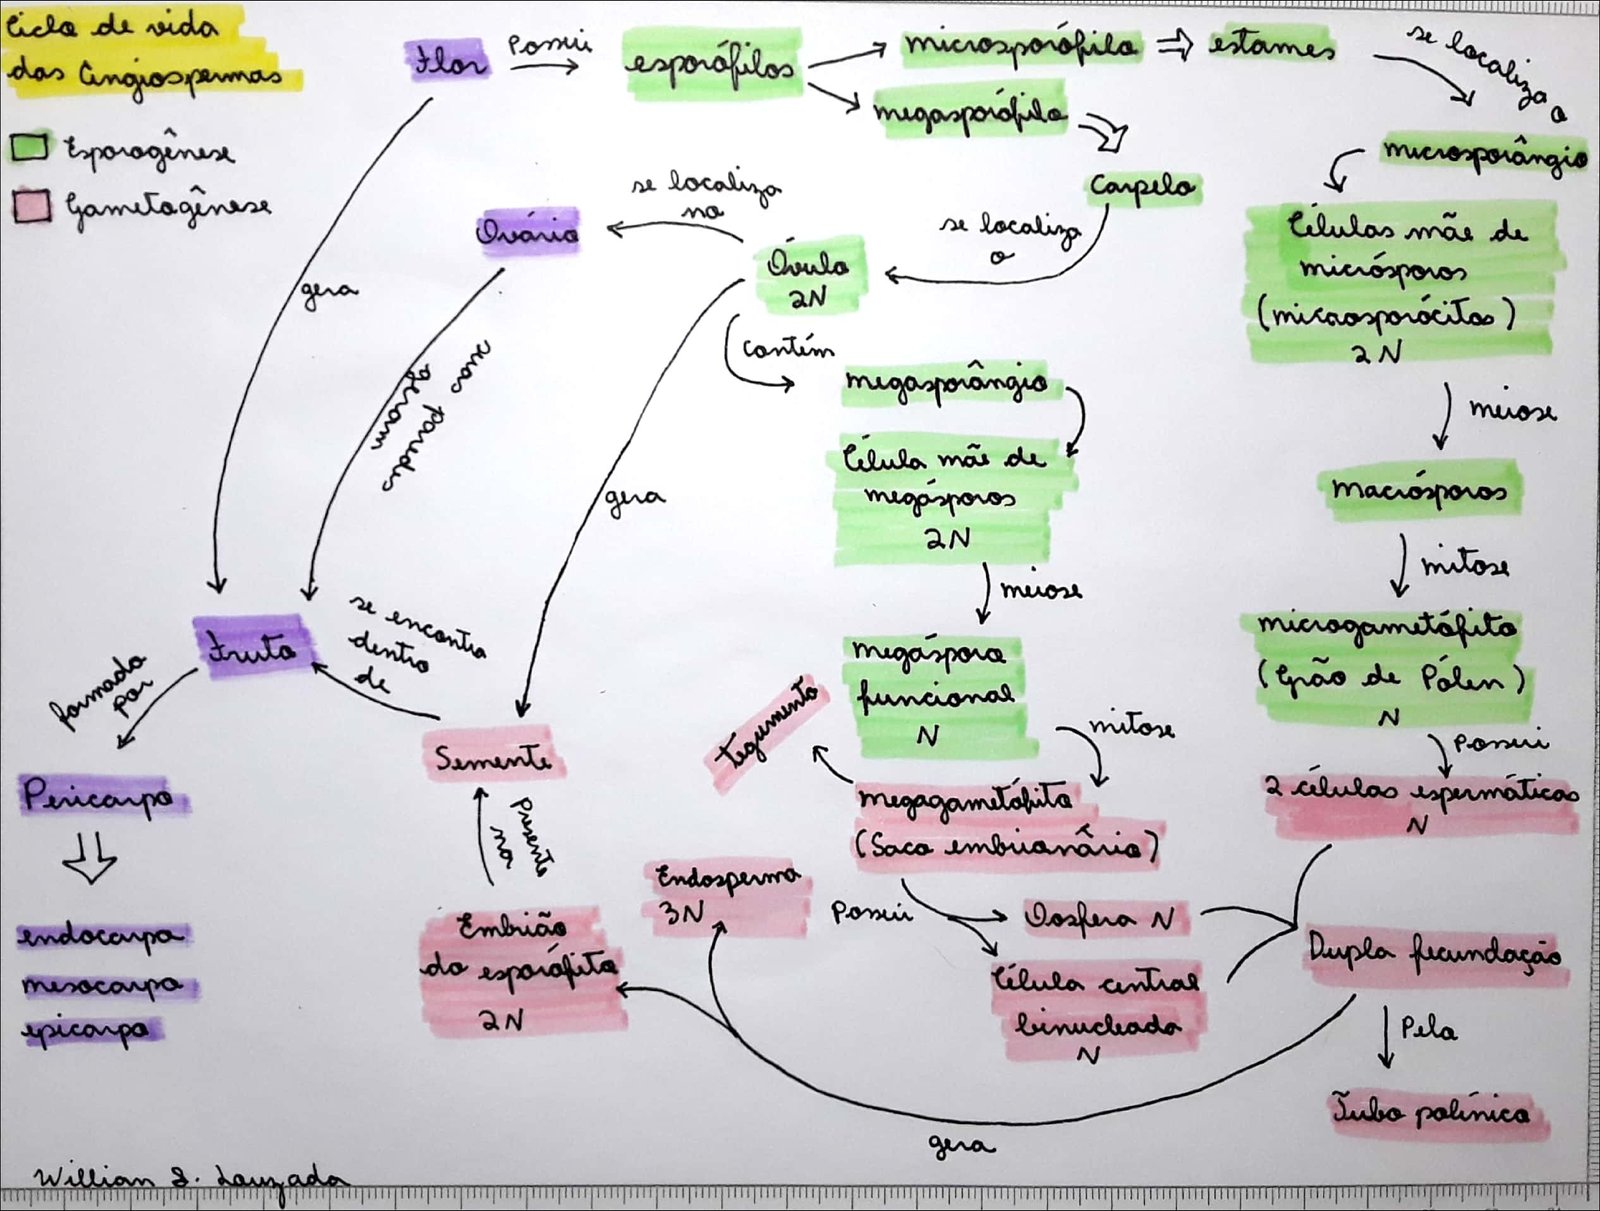 Ciclo de vida
das Angiospermas
Esporogênese
Gametogênese
Flor
Possui
esporófilos
microsporófilo
estames
se localiza
o
megasporófilo
microsporângio
Carpelo
se localiza
o
Óvulo
2N
se localiza
no
Ovário
Células mãe de
micrósporos
(microsporócitos)
2N
meiose
macrósporos
mitose
microgametófito
(Grão de Pólen)
N
Possui
2 células espermáticas
N
gera
suas paredes
geram
gera
contém
megasporângio
Célula mãe de
megásporos
2N
meiose
megásporo
funcional
N
mitose
tegumento
megagametófito
(Saco embrionário)
Possui
Oosfera N
Célula central
binucleada
N
Dupla fecundação
Pela
Tubo polínico
gera
Endosperma
3N
Embrião
do esporófito
2N
presente
na
Semente
se encontra
dentro
de
Fruto
formado
por
Pericarpo
endocarpo
mesocarpo
epicarpo
Willian S. Louzada